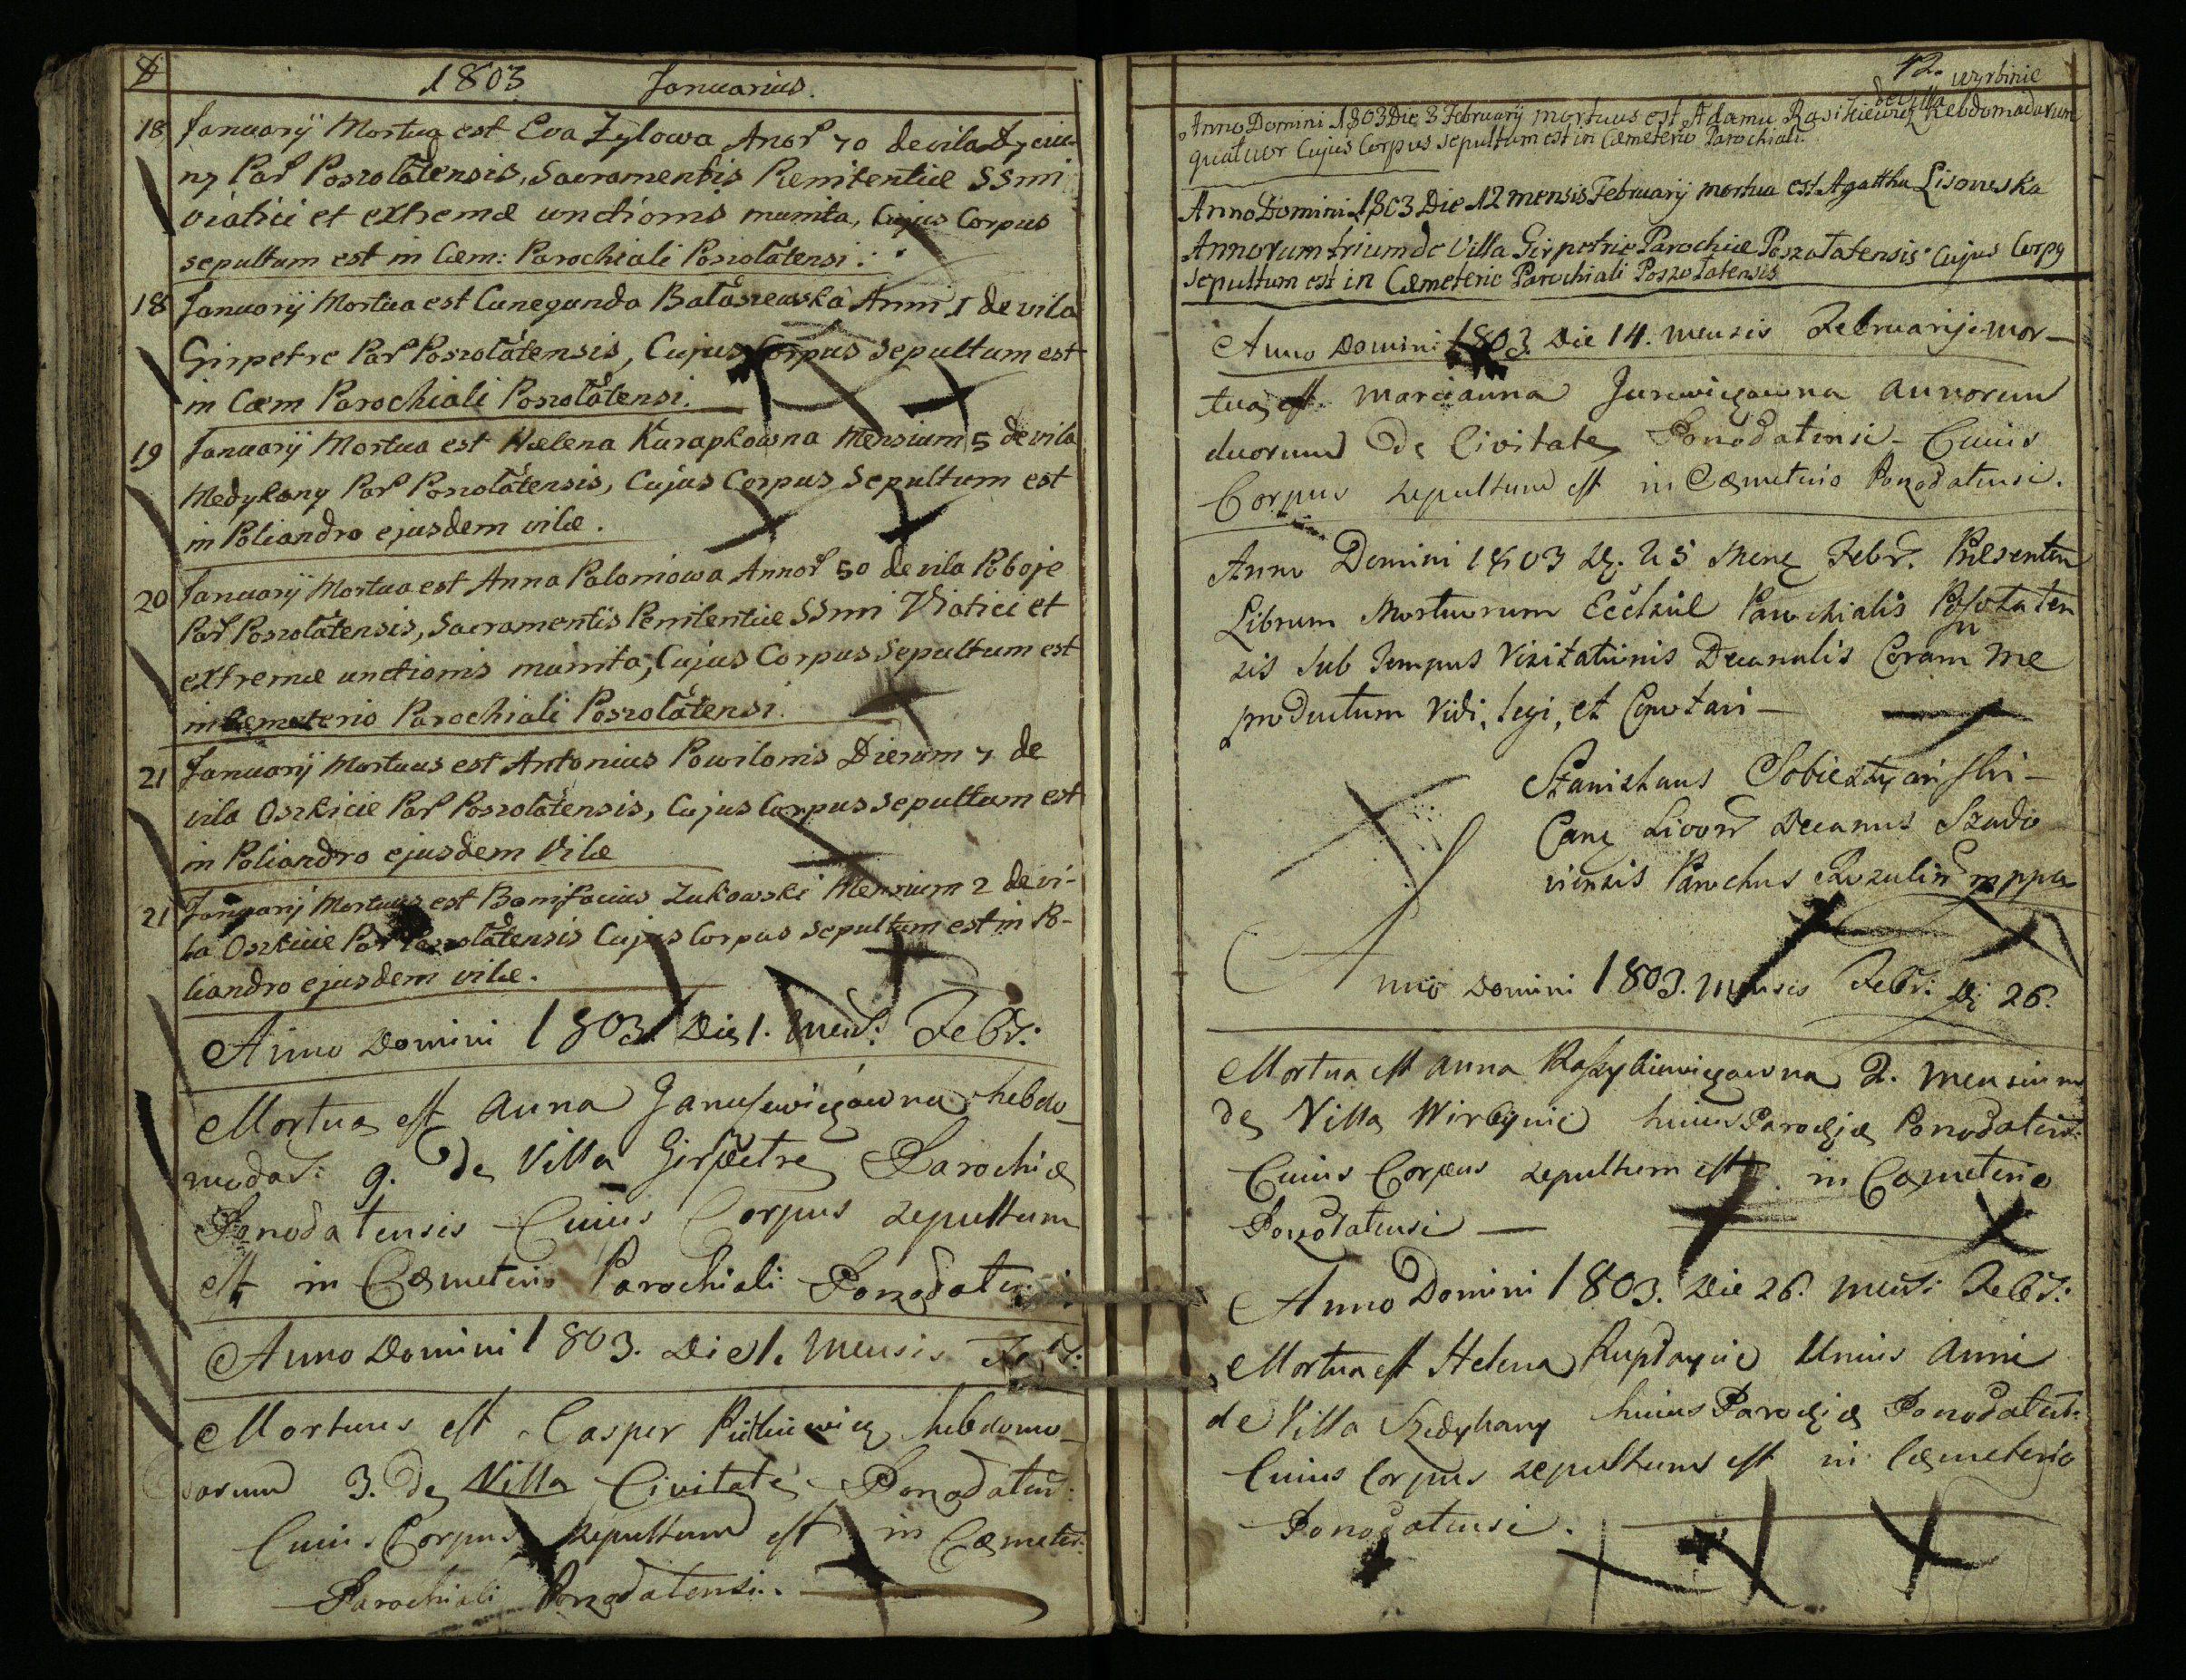 1803 Januarius.
18 Januarij Mortua est Eva Zylowa Anor 70 de vila
Par Poszolatensis, Sacramentis Penitentiæ SSmi
viatici et extremæ unctionis munita, Cujus Corpus
sepultum est in Cæm: Parochiali Poszolatensi.
18 Januarij Mortua est Cunegunda Bałaszewska Anni 1 de vila
Girpetre Par Poszolatensis, Cujus Corpus sepultum est
in Cæm Parochiali Poszolatensi.
19 Januarij Mortua est Helena Kurapkowna Mensium 5 de vila
Medykany Par Poszolatensis, Cujus Corpus Sepultum est
in Poliandro ejusdem vilæ.
20 Januarij Mortua est Anna Palomowa Annor 50 de vila Poboje
Par Poszolatensis, Sacramentis Penitentiæ SSmi Viatici et
extremæ unctionis munita, Cujus Corpus Sepultum est
in Cæmeterio Parochiali Poszolatensi.
21 Januarij Mortuus est Antonius Powilonis Dierum 7 de
vila Oszkicie Par Poszolatensis, Cujus Corpus sepultum est
in Poliandro ejusdem Vilæ
21 Januarij Mortuus est Bonifacius Zukowski Mensium 2 de vi-
la Oszkicie Par Poszolatensis Cujus Corpus sepultum est in Po-
liandro ejusdem vilæ.
Anno Domini 1803 Die 1. Mens: Febr:
Mortua est Anna Janusewiczowna hebdo-
madar: 9. de Villa Girpetre Parochiæ
Poszolatensis Cuius Corpus sepultum
est in Cæmeterio Parochiali
Anno Domini 1803. Die 1. Mensis Febr:
Mortuus est Casper hebdomo-
darum 3. de Villa Civitate
Cuius Corpus sepultum est in Cæmeter:
Parochiali Poszolatensi.
12.
de villa wyrbinie
Anno Domini 1803 Die 3 Februarij mortuus est Adamu Hebdomadarum
quatuor Cujus Corpus sepultum est in Cæmeterio Parochiali.
Anno Domini 1803 Die 12 mensis Februarij mortua est Agattha Lisowska
Annorum trium de Villa Girpetrie Parochiæ Poszolatensis Cujus Corpg
sepultum est in Cæmeterio Parochiali Poszolatensis
Anno Domini 1803. Die 14. mensis Februarij mor-
tua est Marcianna Jurewiczowna annorum
duorum De Civitate Cuius
Corpus sepultum est in Cæmeterio
Anno Domini 1803 D. 25 Mens Febr. Præsentem
Librum Mortuorum Eccleziæ Parochialis Posolaten
sis sub tempus Vizitationis Decanalis Coram me
productum Vidi, legi, et Conotavi —
Stanislaus
Can Livon Decanus Szado
viensis Parochus Rozulin mppa
Anno Domini 1803. Mensis Febr: Di 26.
Mortua est Anna 2. Mensium
de Villa Wirbynie huius Parochiæ
Cuius Corpus sepultum est in Cæmeterio
Poszolatensi —
Anno Domini 1803. Die 26. Mens: Febr:
Mortua est Helena Unius Anni
de Villa huius Parochiæ
Cuius Corpus sepultum est in Cæmeterio
Poszolatensi.